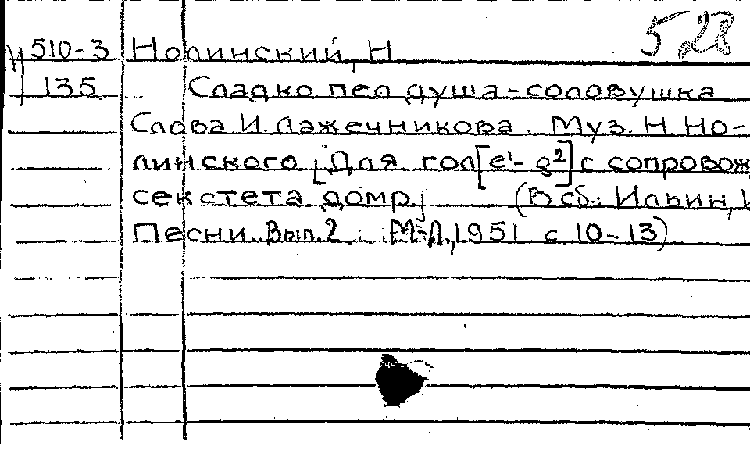 528
И510-3 Нолинский, Н
135 Сладко пел душа-соловушка
Слова И Лажечникова. Муз. Н Но-
линского [Для гол[e¹-g²] с сопровож
секстета домр] (В сб. Ильин, И
Песни. Вып. 2. М-Л, 1951 с 10-13)